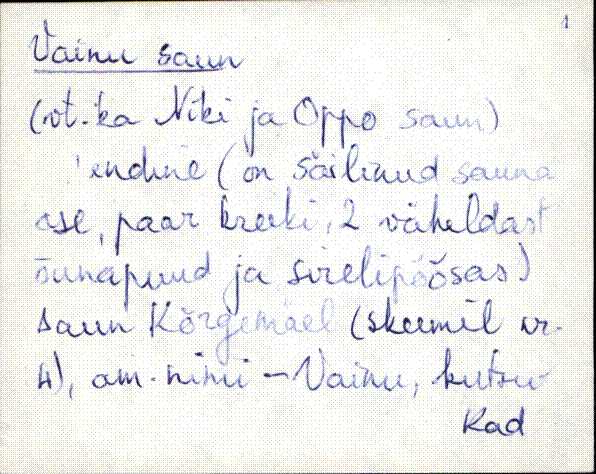 1
Vainu saun
(vt. ka Niki ja Oppo saun)
'endine (on säilinud sauna
ase, paar kreeki, 2 väheldast
õunapuud ja sirelipõõsas)
saun Kõrgemäel (skeemil nr.
4), am. nimi - Vainu, kutsu-
Kad